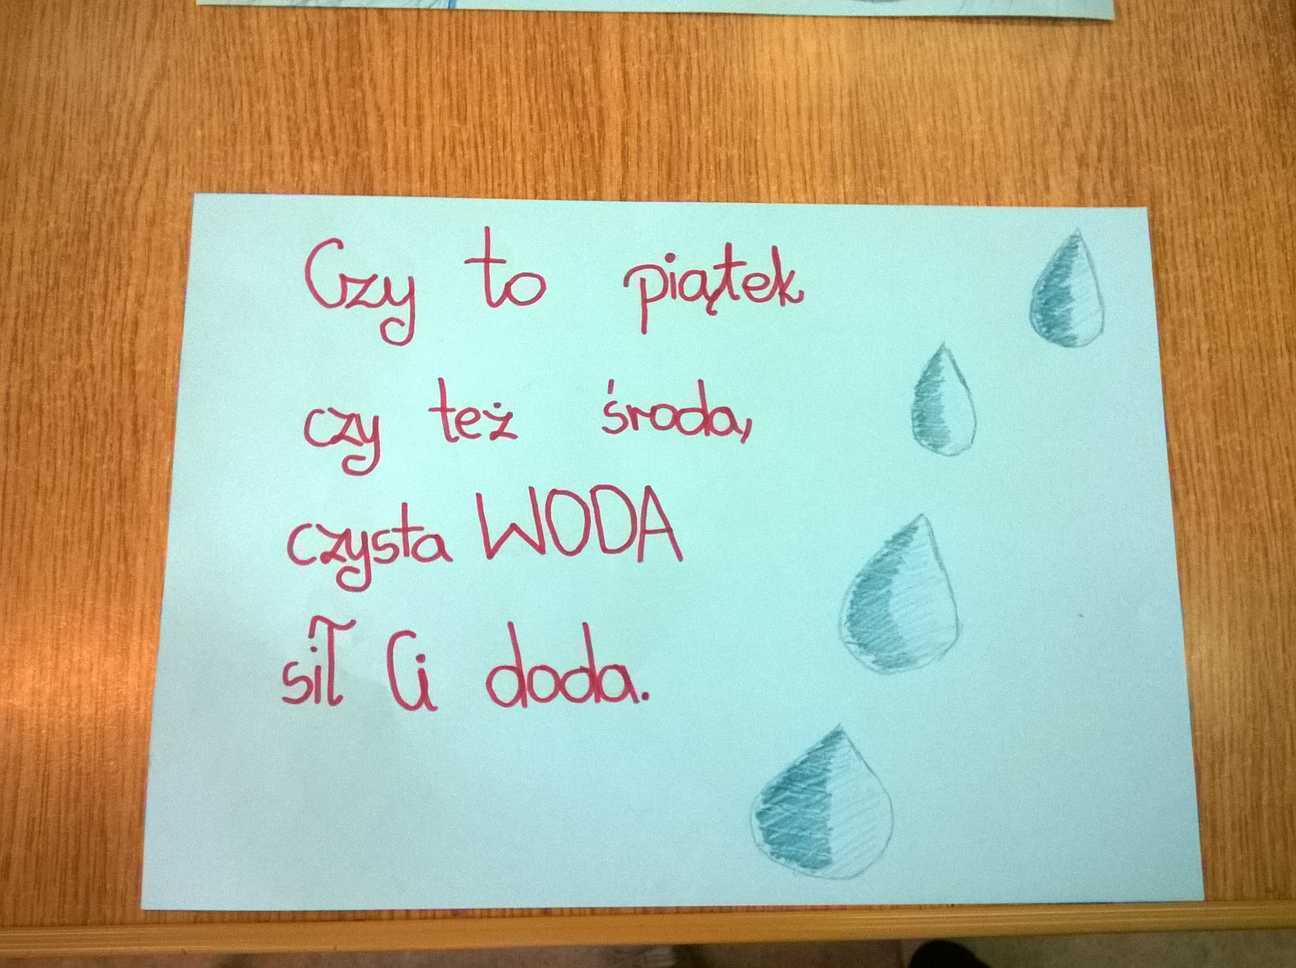 Czy to piątek
czy też środa,
czysta WODA
sił Ci doda.